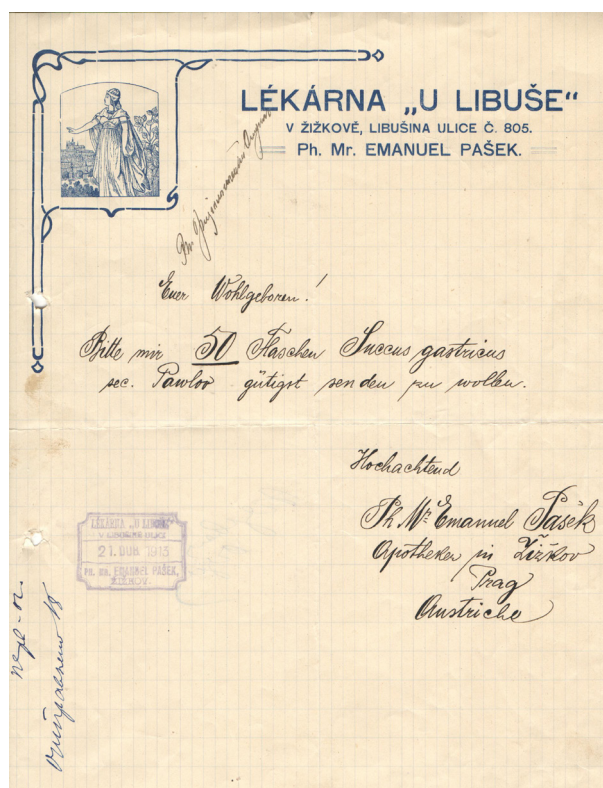 LÉKÁRNA „U LIBUŠE“
V ŽIŽKOVĚ, LIBUŠINA ULICE Č. 805.
Ph. Mr. EMANUEL PAŠEK.
Euer Wohlgeboren!
Bitte mir 50 Flaschen Succus gastricus
sec. Pawlov gütigst senden zu wollen.
Hochachtend
Ph Mr Emanuel Pašek
Apotheker in Žižkov
Prag
Austriche
LÉKÁRNA „U LIBUŠE“
V LIBUŠINĚ ULICI
21. DUB 1913
PH. MR. EMANUEL PAŠEK,
ŽIŽKOV.
18